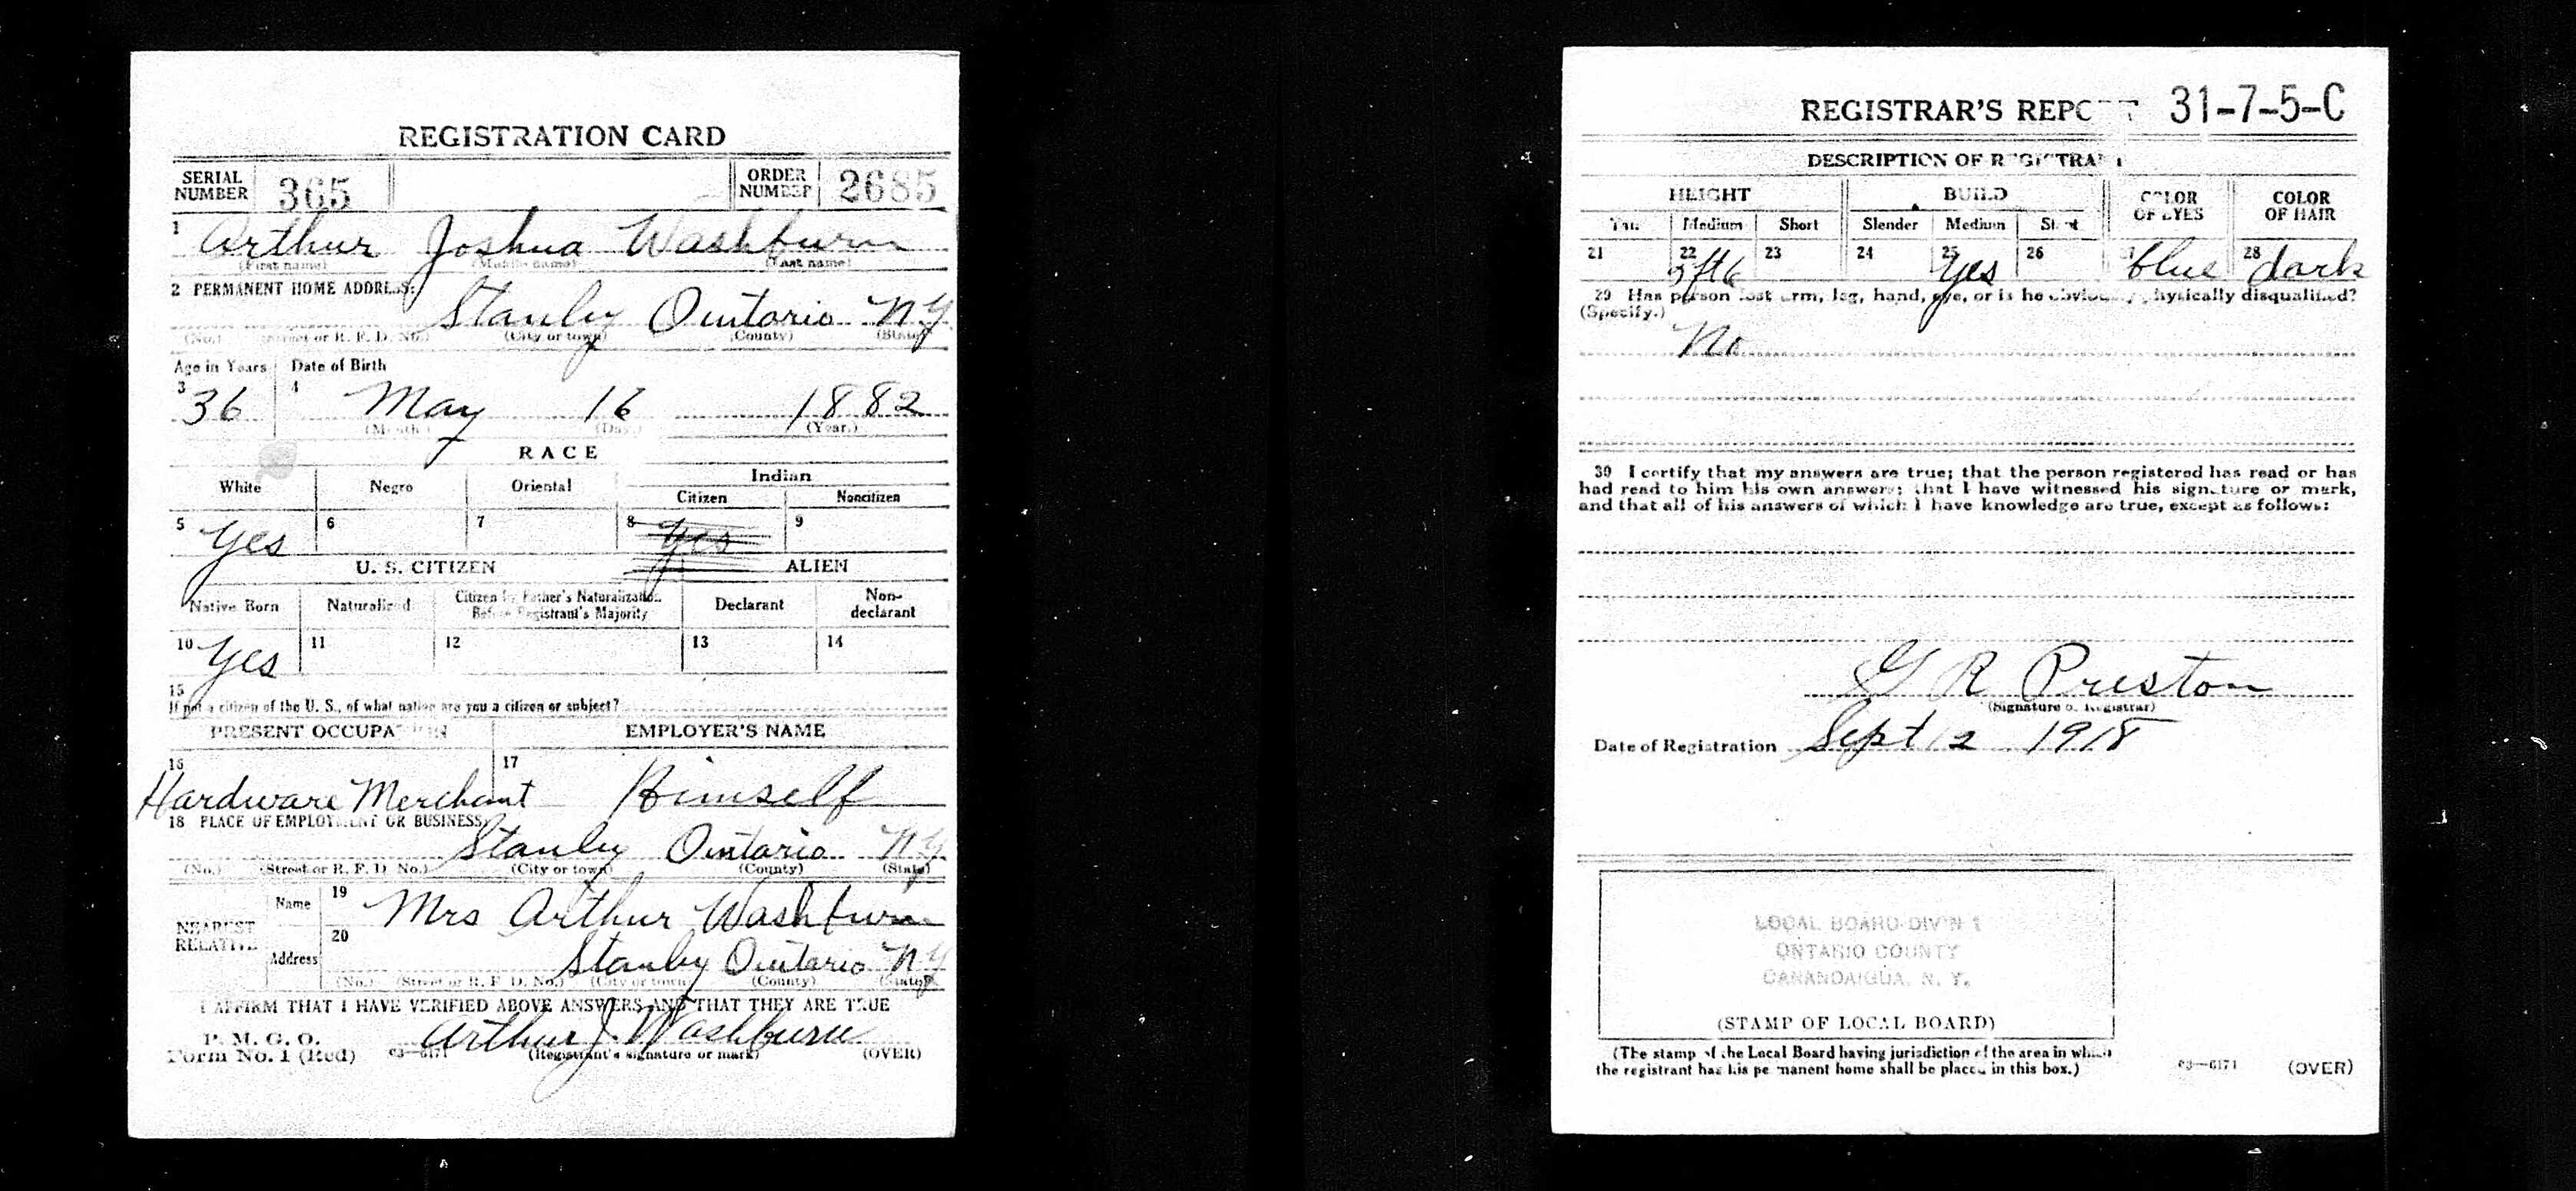 REGISTRATION CARD
SERIAL NUMBER 365 ORDER NUMBER 2685
1 Arthur Joshua Washburn
(First name) (Middle name) (Last name)
2 PERMANENT HOME ADDRESS:
Stanley Ontario NY
(No.) (Street or R. F. D. No.) (City or town) (County) (State)
Age in Years Date of Birth
3 36 4 May 16 1882
(Month.) (Day.) (Year.)
RACE
White Negro Oriental Indian
Citizen Noncitizen
5 Yes 6 7 8 Yes 9
U. S. CITIZEN ALIEN
Native Born Naturalized Citizen by Father's Naturalization Before Registrant's Majority Declarant Non-declarant
10 Yes 11 12 13 14
15
If not a citizen of the U. S., of what nation are you a citizen or subject?
PRESENT OCCUPATION EMPLOYER'S NAME
16 Hardware Merchant 17 Himself
18 PLACE OF EMPLOYMENT OR BUSINESS:
Stanley Ontario NY
(No.) (Street or R. F. D. No.) (City or town) (County) (State)
NEAREST RELATIVE
Name 19 Mrs Arthur Washburn
Address 20 Stanley Ontario NY
(No.) (Street or R. F. D. No.) (City or town) (County) (State)
I AFFIRM THAT I HAVE VERIFIED ABOVE ANSWERS AND THAT THEY ARE TRUE
P. M. G. O.
Form No. 1 (Red) 03—6171 Arthur J. Washburn
(Registrant's signature or mark) (OVER)
REGISTRAR'S REPORT 31-7-5-C
DESCRIPTION OF REGISTRANT
HEIGHT BUILD COLOR OF EYES COLOR OF HAIR
Tall Medium Short Slender Medium Stout
21 22 5ft6 23 24 25 Yes 26 27 blue 28 dark
29 Has person lost arm, leg, hand, eye, or is he obviously physically disqualified?
(Specify.)
No
30 I certify that my answers are true; that the person registered has read or has
had read to him his own answers; that I have witnessed his signature or mark,
and that all of his answers of which I have knowledge are true, except as follows:
G R Preston
(Signature of Registrar)
Date of Registration Sept 12 1918
LOCAL BOARD DIV'N 1
ONTARIO COUNTY
CANANDAIGUA, N. Y.
(STAMP OF LOCAL BOARD)
(The stamp of the Local Board having jurisdiction of the area in which
the registrant has his permanent home shall be placed in this box.)
03—6171 (OVER)